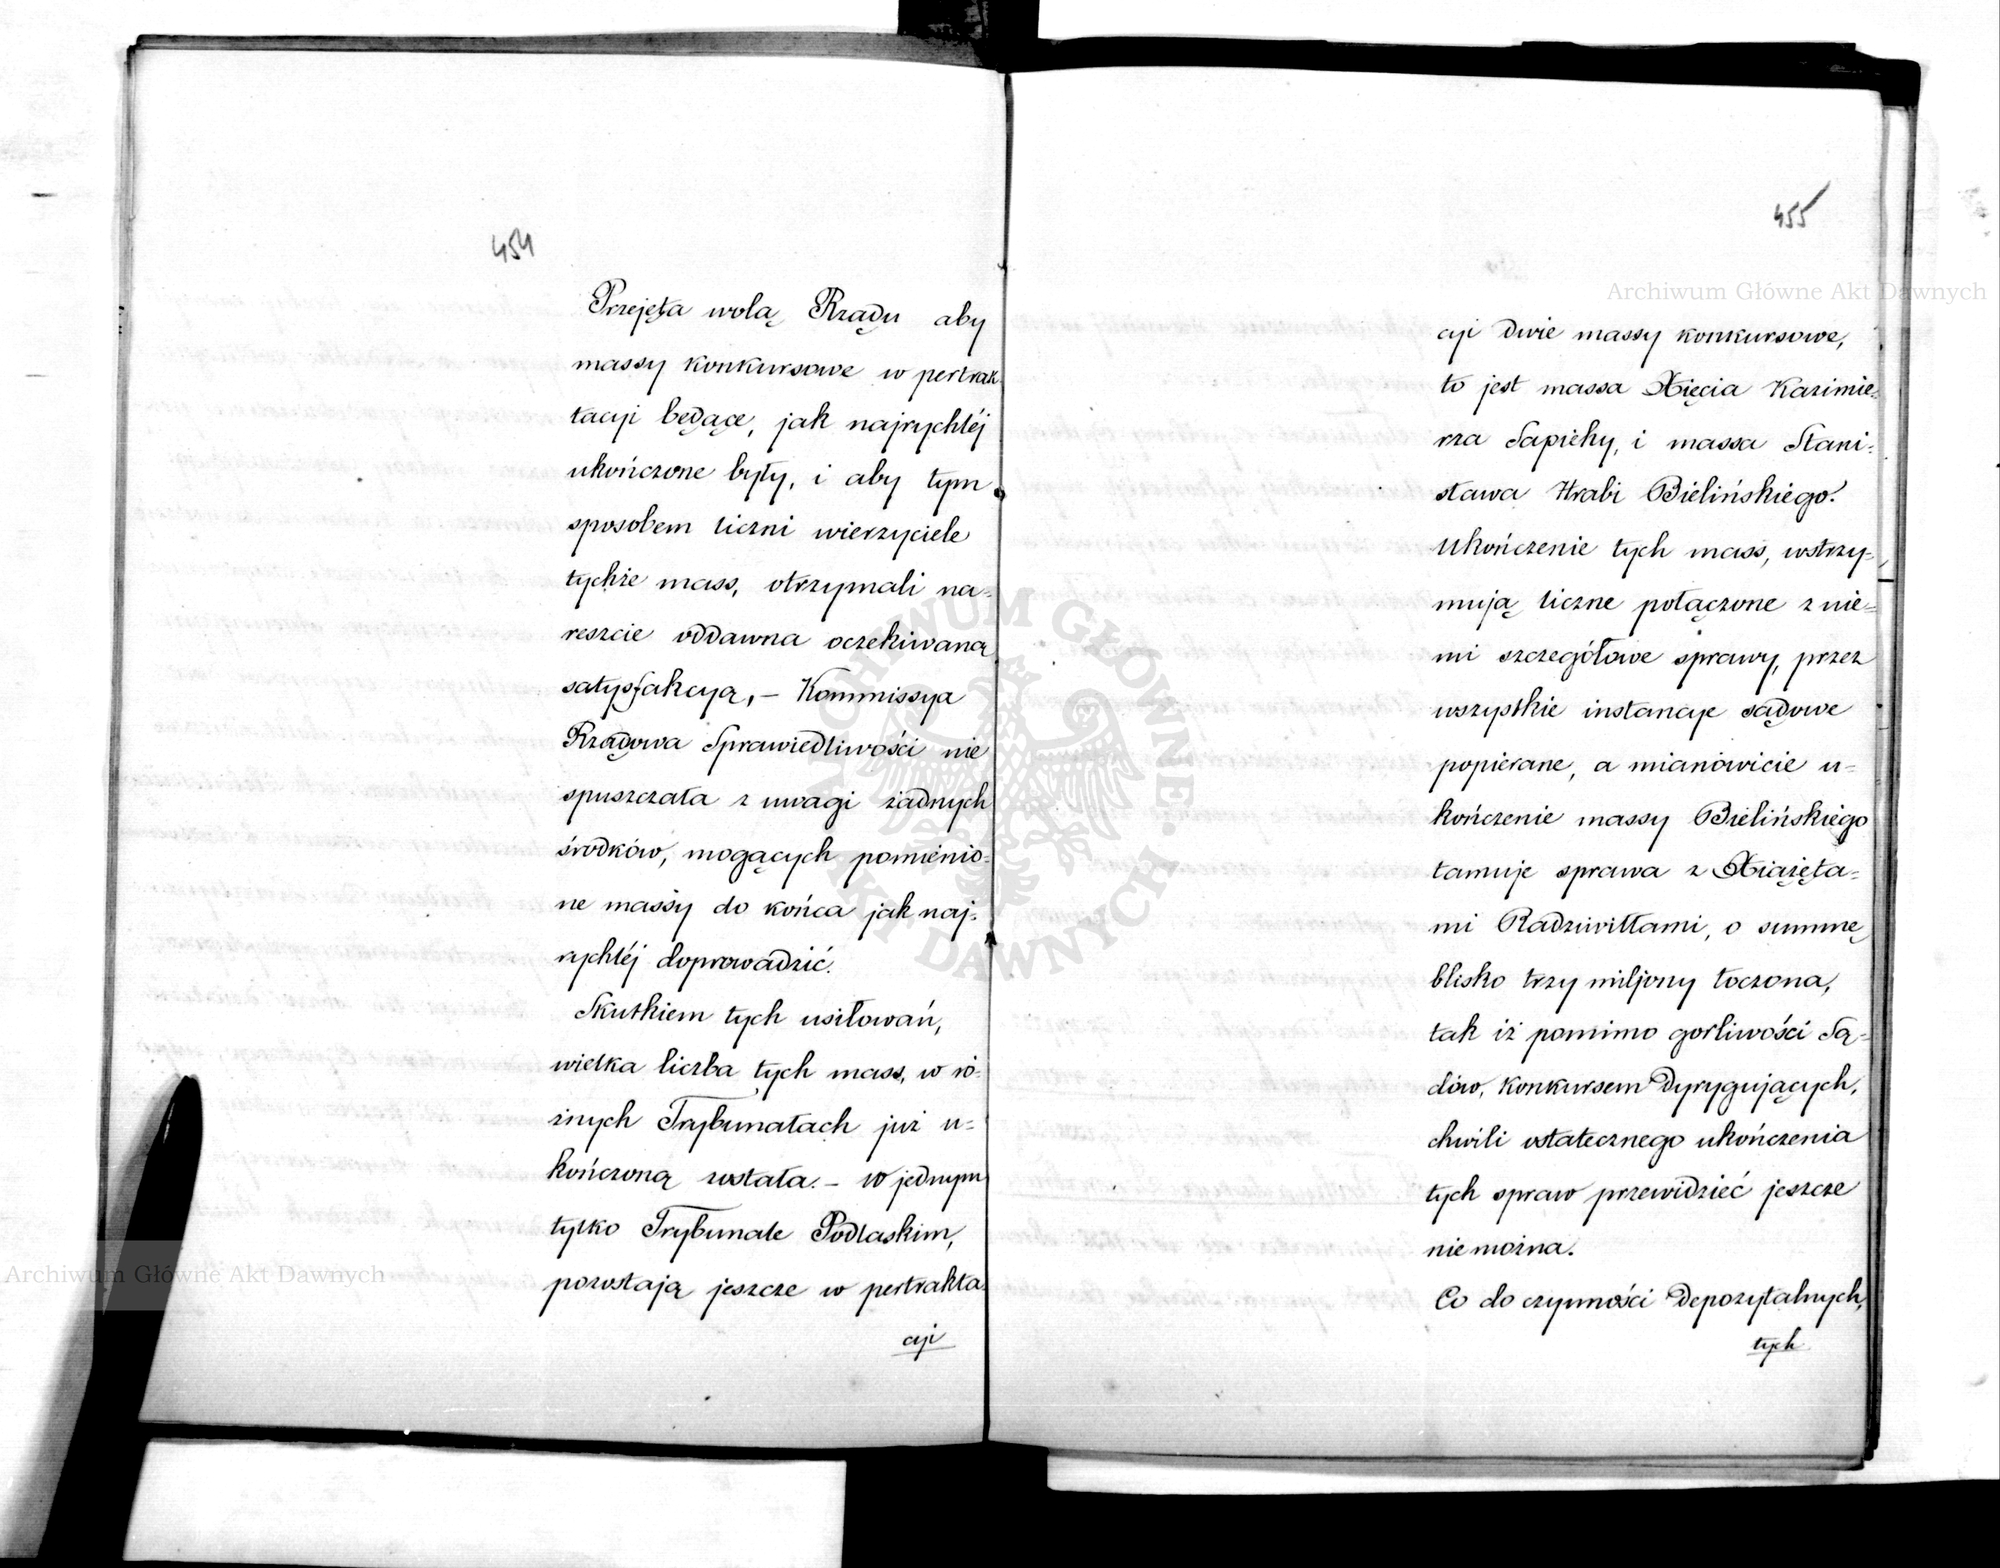 454
Przejęta wolą Rządu aby
massy konkursowe w pertrak
tacyi będące, jak najrychléj
ukończone były, i aby tym
sposobem liczni wierzyciele
tychże mass, otrzymali na=
reszcie oddawna oczekiwaną
satysfakcyą, – Kommissya
Rządowa Sprawiedliwości nie
spuszczała z uwagi żadnych
środków, mogących pomienio=
ne massy do końca jak naj=
rychléj doprowadzić.
Skutkiem tych usiłowań,
wielka liczba tych mass, w ró=
żnych Trybunałach już u=
kończoną została. – W jednym
tylko Trybunale Podlaskim,
pozostają jeszcze w pertrakta=
cyi
455
cyi dwie massy konkursowe,
to jest massa Xięcia Kazimie=
rza Sapiehy, i massa Stani=
sława Hrabi Bielińskiego.
Ukończenie tych mass, wstrzy=
mują liczne połączone z nie=
mi szczegółowe sprawy, przez
wszystkie instancye sądowe
popierane, a mianowicie u=
kończenie massy Bielińskiego
tamuje sprawa z Xiążęta=
mi Radziwiłłami, o summę
blisko trzy miljony toczona,
tak iż pomimo gorliwości Są=
dów, konkursem dyrygujących,
chwili ostatecznego ukończenia
tych spraw przewidzieć jeszcze
niemożna.
Co do czynności Depozytalnych,
tych
Archiwum Główne Akt Dawnych
Archiwum Główne Akt Dawnych
ARCHIWUM GŁÓWNE AKT DAWNYCH